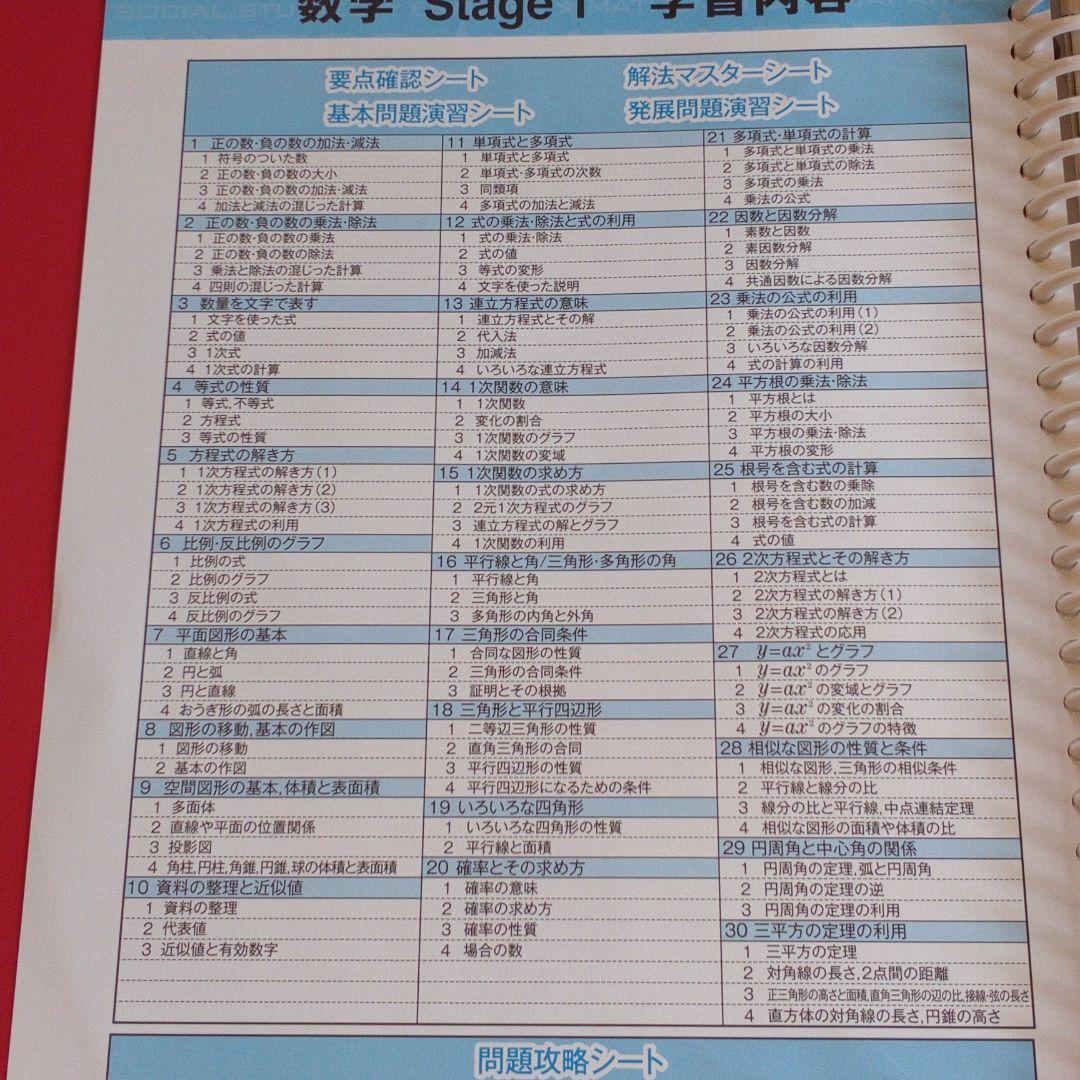 数学 Stage 1 学習内容
要点確認シート 解法マスターシート
基本問題演習シート 発展問題演習シート
1 正の数・負の数の加法・減法
1 符号のついた数
2 正の数・負の数の大小
3 正の数・負の数の加法・減法
4 加法と減法の混じった計算
2 正の数・負の数の乗法・除法
1 正の数・負の数の乗法
2 正の数・負の数の除法
3 乗法と除法の混じった計算
4 四則の混じった計算
3 数量を文字で表す
1 文字を使った式
2 式の値
3 1次式
4 1次式の計算
4 等式の性質
1 等式,不等式
2 方程式
3 等式の性質
5 方程式の解き方
1 1次方程式の解き方(1)
2 1次方程式の解き方(2)
3 1次方程式の解き方(3)
4 1次方程式の利用
6 比例・反比例のグラフ
1 比例の式
2 比例のグラフ
3 反比例の式
4 反比例のグラフ
7 平面図形の基本
1 直線と角
2 円と弧
3 円と直線
4 おうぎ形の弧の長さと面積
8 図形の移動,基本の作図
1 図形の移動
2 基本の作図
9 空間図形の基本,体積と表面積
1 多面体
2 直線や平面の位置関係
3 投影図
4 角柱,円柱,角錐,円錐,球の体積と表面積
10 資料の整理と近似値
1 資料の整理
2 代表値
3 近似値と有効数字
11 単項式と多項式
1 単項式と多項式
2 単項式・多項式の次数
3 同類項
4 多項式の加法と減法
12 式の乗法・除法と式の利用
1 式の乗法・除法
2 式の値
3 等式の変形
4 文字を使った説明
13 連立方程式の意味
1 連立方程式とその解
2 代入法
3 加減法
4 いろいろな連立方程式
14 1次関数の意味
1 1次関数
2 変化の割合
3 1次関数のグラフ
4 1次関数の変域
15 1次関数の求め方
1 1次関数の式の求め方
2 2元1次方程式のグラフ
3 連立方程式の解とグラフ
4 1次関数の利用
16 平行線と角/三角形・多角形の角
1 平行線と角
2 三角形と角
3 多角形の内角と外角
17 三角形の合同条件
1 合同な図形の性質
2 三角形の合同条件
3 証明とその根拠
18 三角形と平行四辺形
1 二等辺三角形の性質
2 直角三角形の合同
3 平行四辺形の性質
4 平行四辺形になるための条件
19 いろいろな四角形
1 いろいろな四角形の性質
2 平行線と面積
20 確率とその求め方
1 確率の意味
2 確率の求め方
3 確率の性質
4 場合の数
21 多項式・単項式の計算
1 多項式と単項式の乗法
2 多項式と単項式の除法
3 多項式の乗法
4 乗法の公式
22 因数と因数分解
1 素数と因数
2 素因数分解
3 因数分解
4 共通因数による因数分解
23 乗法の公式の利用
1 乗法の公式の利用(1)
2 乗法の公式の利用(2)
3 いろいろな因数分解
4 式の計算の利用
24 平方根の乗法・除法
1 平方根とは
2 平方根の大小
3 平方根の乗法・除法
4 平方根の変形
25 根号を含む式の計算
1 根号を含む数の乗除
2 根号を含む数の加減
3 根号を含む式の計算
4 式の値
26 2次方程式とその解き方
1 2次方程式とは
2 2次方程式の解き方(1)
3 2次方程式の解き方(2)
4 2次方程式の応用
27 y=ax²とグラフ
1 y=ax²のグラフ
2 y=ax²の変域とグラフ
3 y=ax²の変化の割合
4 y=ax²のグラフの特徴
28 相似な図形の性質と条件
1 相似な図形,三角形の相似条件
2 平行線と線分の比
3 線分の比と平行線,中点連結定理
4 相似な図形の面積や体積の比
29 円周角と中心角の関係
1 円周角の定理,弧と円周角
2 円周角の定理の逆
3 円周角の定理の利用
30 三平方の定理の利用
1 三平方の定理
2 対角線の長さ,2点間の距離
3 正三角形の高さと面積,直角三角形の辺の比,接線・弦の長さ
4 直方体の対角線の長さ,円錐の高さ
問題攻略シート